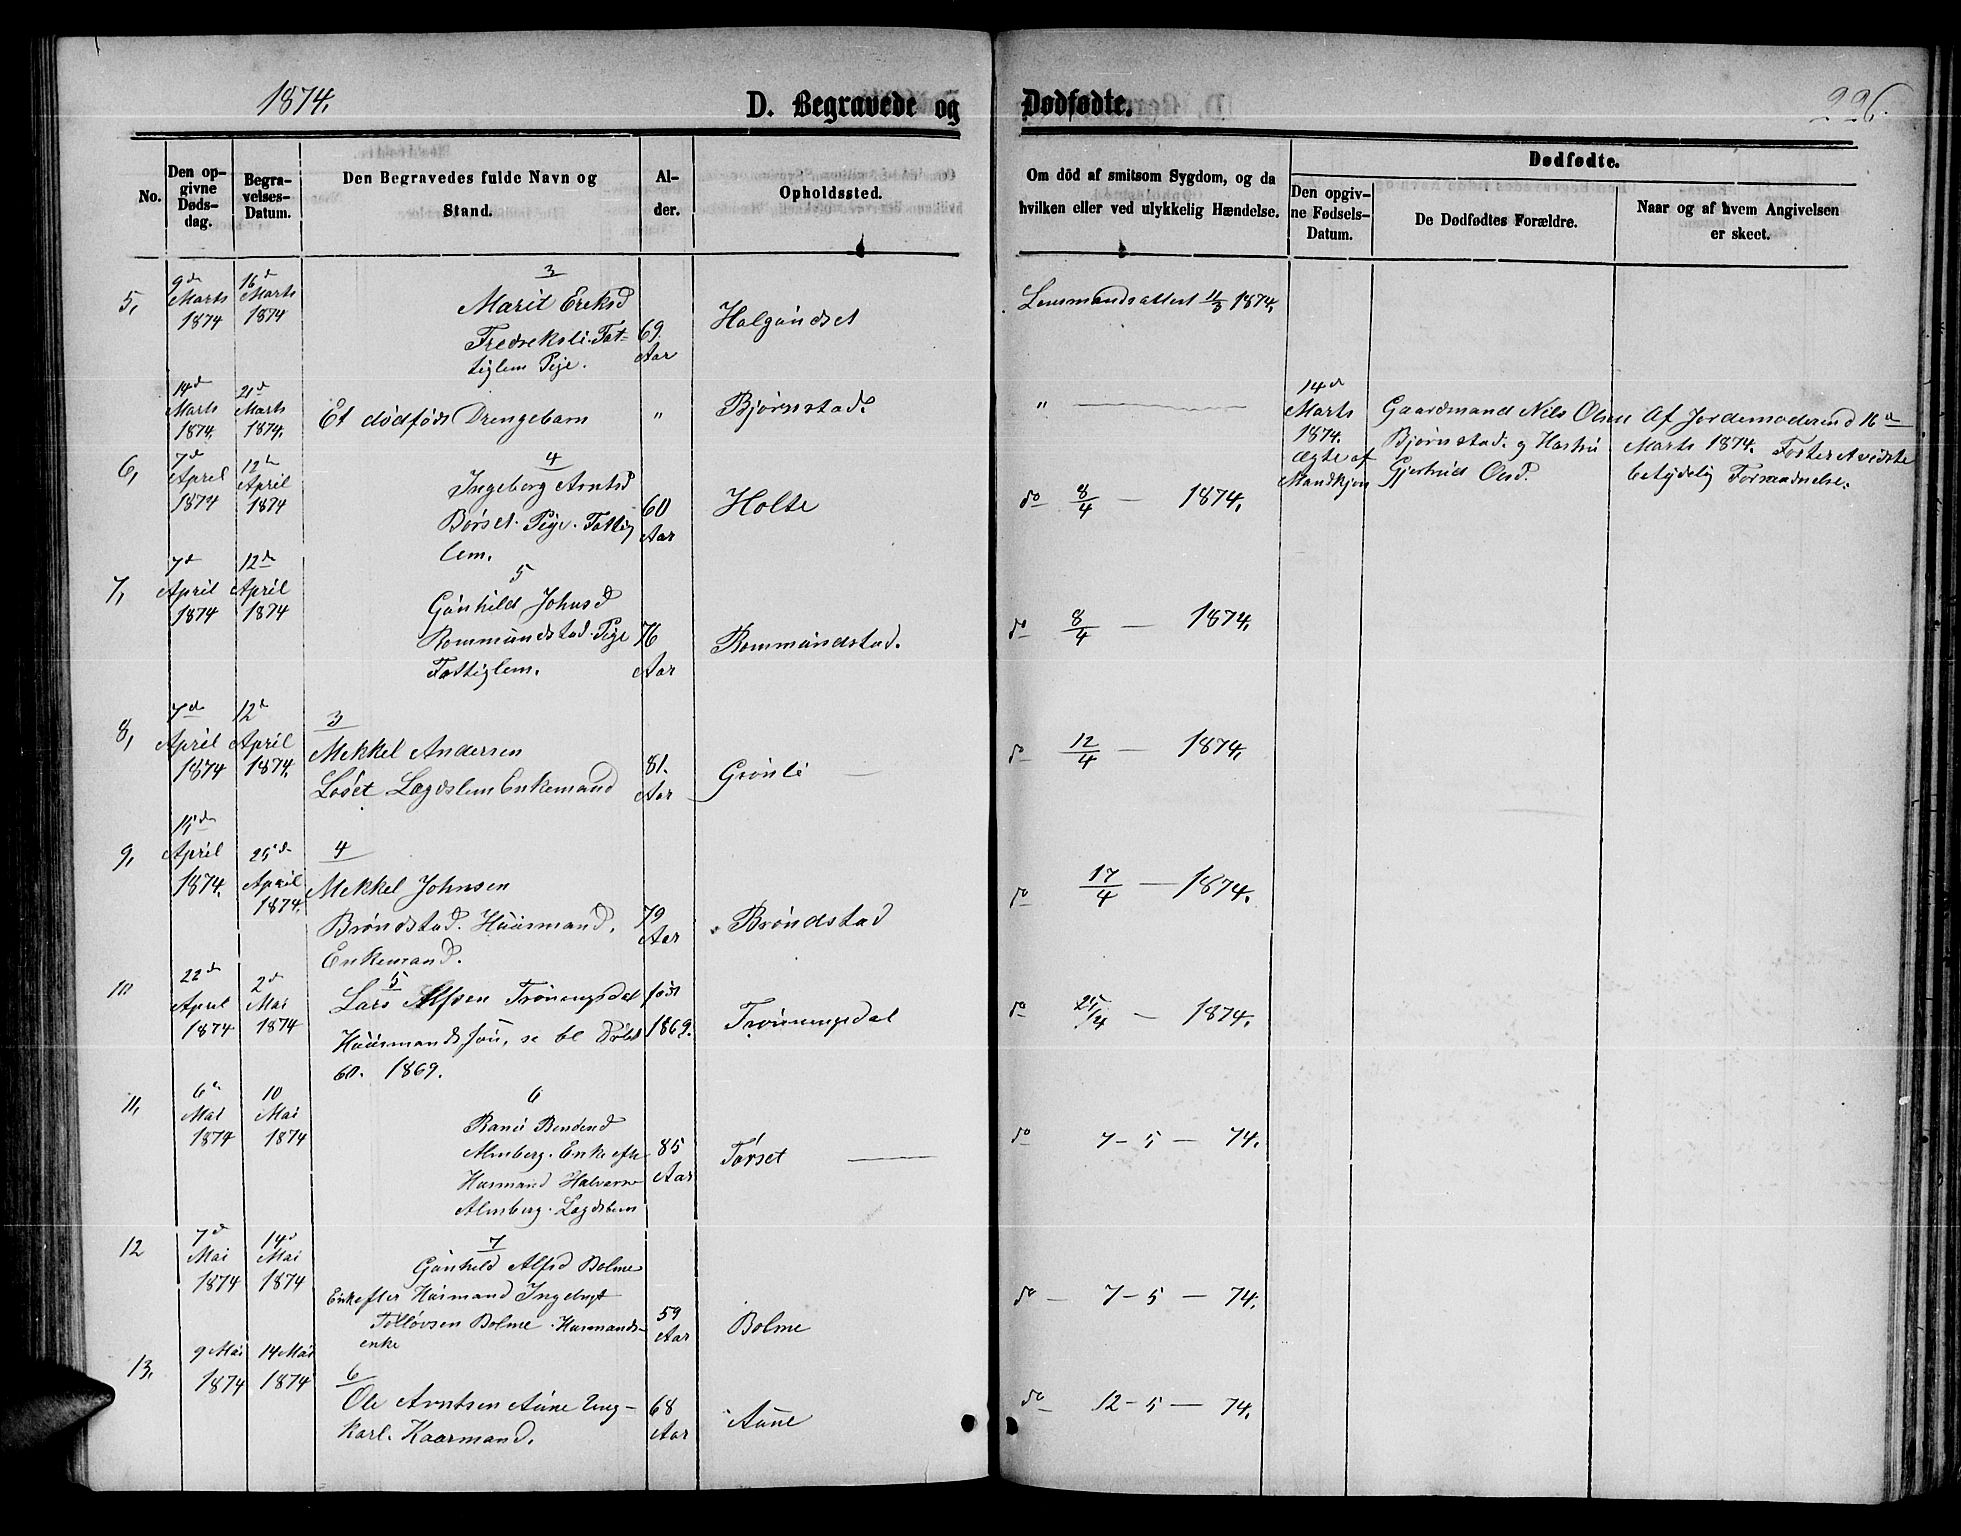 1874.
D. Begravede og Dødfødte.
226.
No.
Den op-
givne
Døds-
dag.
Begra-
velses-
Datum.
Den Begravedes fulde Navn og
Stand.
Al-
der.
Opholdssted.
Om død af smitsom Sygdom, og da
hvilken eller ved ulykkelig Hændelse.
Dødfødte.
Den opgiv-
ne Fødsels-
Datum.
De Dødfødtes Forældre.
Naar og af hvem Angivelsen
er skeet.
5,
9d
Marts
1874
16d
Marts
1874
3
Marit Ereksd
Fredreksli. Fat-
tiglem Pige.
69.
Aar
Halgundset
Lensmandsattest 11/3 1874.
14d
Marts
1874.
21d
Marts
1874.
Et dødfødt Drengebarn
"
Bjørnstad.
"
14d
Marts
1874.
ægte af
Mandkjøn
Gaardmand Nils Olsen
Bjørnstad. og Hustru
Gjertrud Olsd.
Af Jordemoderen d 16d
Marts 1874. Fosteret vidste
betydelig
6,
7d
April
1874
12te
April
1874
4
Ingeborg Arntsd
Børset. Pige. Fattig
lem.
60
Aar
Holte
do 8/4 — 1874.
7,
7d
April
1874
12te
April
1874
5
Gunhild Johnsd
Rommundstad. Pige
Fattiglem.
76
Aar
Rommundstad.
do 8/4 — 1874.
8,
7de
April
1874
12d
April
1874.
3
Mekkel Andersen
Løset Lægdslem Enkemand
81.
Aar
Grønli
do 12/4 — 1874.
9,
15de
April
1874.
25de
April
1874.
4
Mekkel Johnsen
Brøndstad. Huusmand.
Enkemand.
79
Aar
Brøndstad
do 17/4 — 1874.
10
22de
April
1874
2d
Mai
1874
5
Lars Alfsen Trønengsdal
Huusmandssøn, se bl Døbte
60. 1869.
født
1869.
Trønengsdal
do 25/4 — 1874.
11,
6te
Mai
1874
10
Mai
1874
6
Almberg. Enke efter
Husmand Halvor
Almberg. Lægdslem
85
Aar
Tørset
do 7-5 — 74.
12
7d
Mai
1874
14d
Mai
1874
7
Gunhild Alfsd Bolme
Enkefter Husmand Ingebrigt
Tolløvsen Bolme. Husmands-
enke
59
Aar
Bolme
do — 7-5 — 74.
13.
9 Mai
1874
14 Mai
1874
6
Ole Arntsen Aune Ung-
karl. Kaarmand.
68
Aar
Aune
do 12-5 — 74.